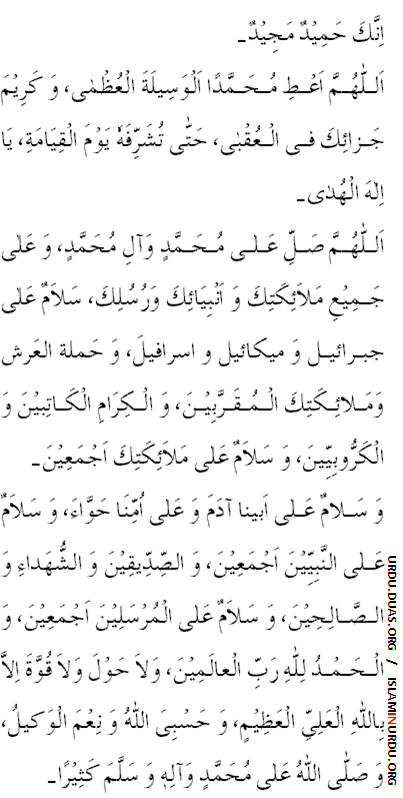 اِنَّكَ حَمِيْدٌ مَجِيْدٌ۔
اَللّٰهُمَّ اَعْطِ مُحَمَّدًا اَلْوَسِيلَةَ الْعُظْمٰى، وَ كَرِيْمَ
جَزائِكَ فى الْعُقْبٰى، حَتّٰى تُشَرِّفَهٗ يَوْمَ الْقِيَامَةِ، يَا
اِلٰهَ الْهُدٰى۔
اَللّٰهُمَّ صَلِّ عَلٰى مُحَمَّدٍ وَآلِ مُحَمَّدٍ، وَ عَلٰى
جَمِيْعِ مَلاَئِكَتِكَ وَ اَنْبِيَائِكَ وَرُسُلِكَ، سَلاَمٌ عَلٰى
جبرائيل وَ ميكائيل و اسرافيلَ، وَ حَملة العَرش
وَمَلائِكَتِكَ الْمُقَرَّبِيْنَ، وَ الْكِرَامِ الْكَاتِبِيْنَ وَ
الْكَرُّوبِيِّينَ، وَ سَلاَمٌ عَلٰى مَلاَئِكَتِكَ اَجْمَعِيْنَ۔
وَ سَلامٌ عَلٰى اَبينا آدَمَ وَ عَلٰى اُمِّنَا حَوَّاءَ، وَ سَلاَمٌ
عَلٰى النَّبِيِّيْنَ اَجْمَعِيْنَ، وَ الصِّدِّيقِيْنَ وَ الشُّهَداءِ وَ
الصَّالِحِيْنَ، وَ سَلاَمٌ عَلَى الْمُرْسَلِيْنَ اَجْمَعِيْنَ، وَ
الْحَمْدُ لِلّٰهِ رَبِّ الْعالَمِيْنَ، وَلاَ حَوْلَ وَلاَ قُوَّةَ اِلاَّ
بِاللهِ الْعَلِيِّ الْعَظِيْمِ، وَ حَسْبِىَ اللهُ وَ نِعْمَ الْوَكيلُ،
وَ صَلَّى اللهُ عَلٰى مُحَمَّدٍ وَآلِهٖ وَ سَلَّمَ كَثِيْرًا۔
URDU.DUAS.ORG / ISLAMINURDU.ORG